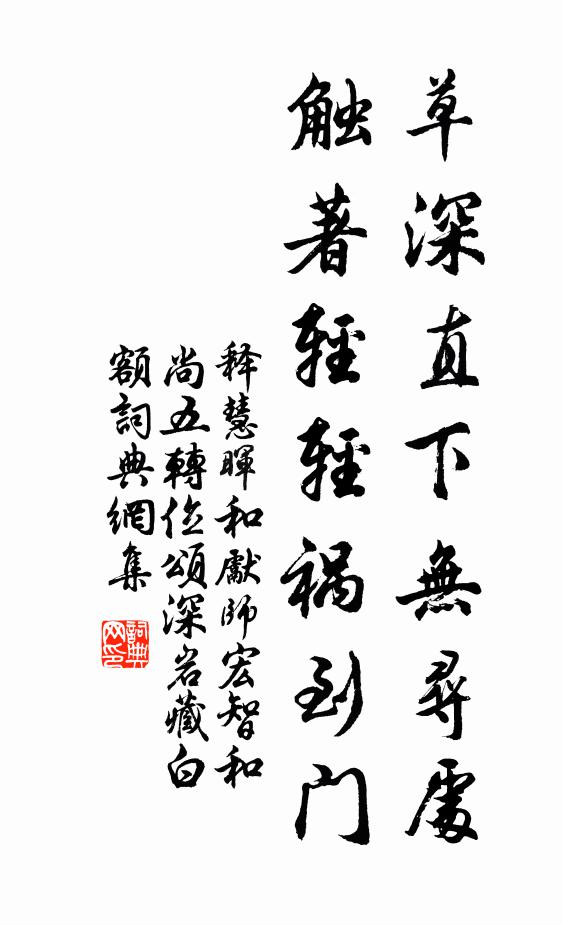 草深直下無尋處
触著輕輕祸到门
释慧暉和獻師宏智和
尚五轉位頌深岩藏白
額詞典網集
詞典
网印